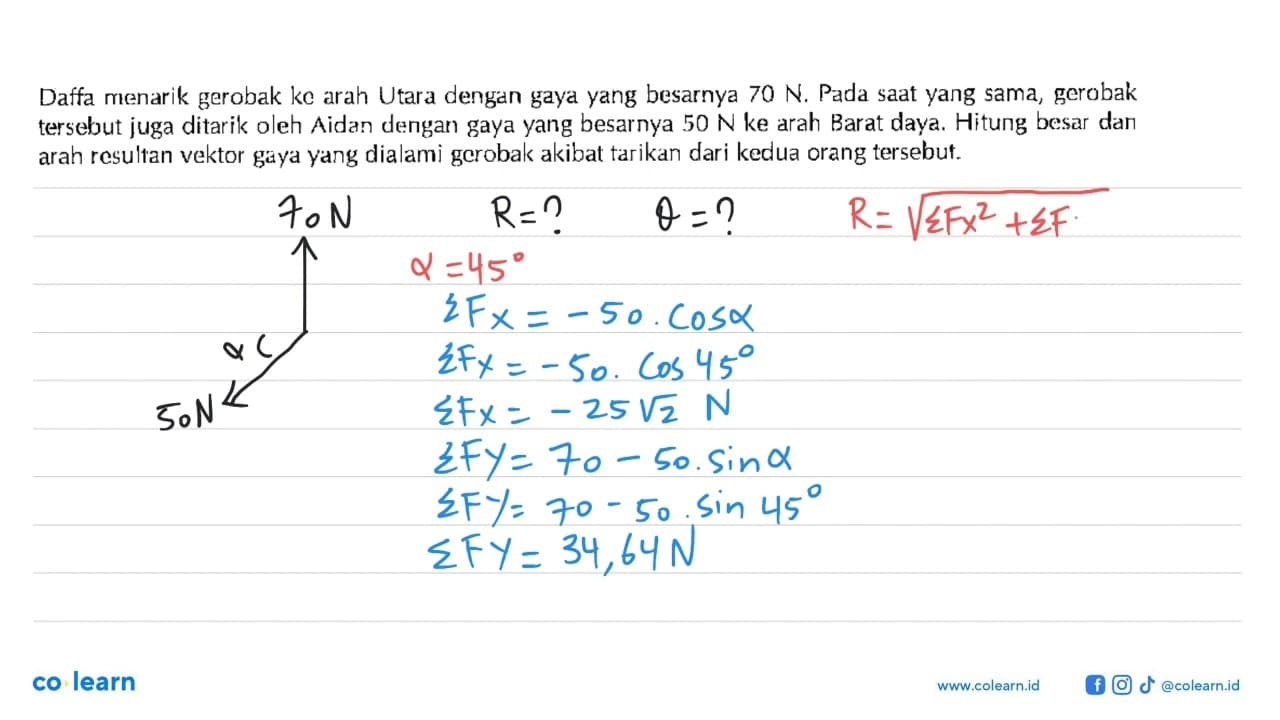 Daffa menarik gerobak ke arah Utara dengan gaya yang besarnya 70 N. Pada saat yang sama, gerobak
tersebut juga ditarik oleh Aidan dengan gaya yang besarnya 50 N ke arah Barat daya. Hitung besar dan
arah resultan vektor gaya yang dialami gerobak akibat tarikan dari kedua orang tersebut.
70N R=? θ=? R= √ΣFx² + ΣF
α =45°
ΣFx = -50. cosα
α
ΣFx = -50. Cos 45°
50N
ΣFx = -25√2 N
ΣFy= 70 - 50. sinα
ΣFy= 70 - 50. sin 45°
ΣFy= 34,64N
co learn www.colearn.id @colearn.id